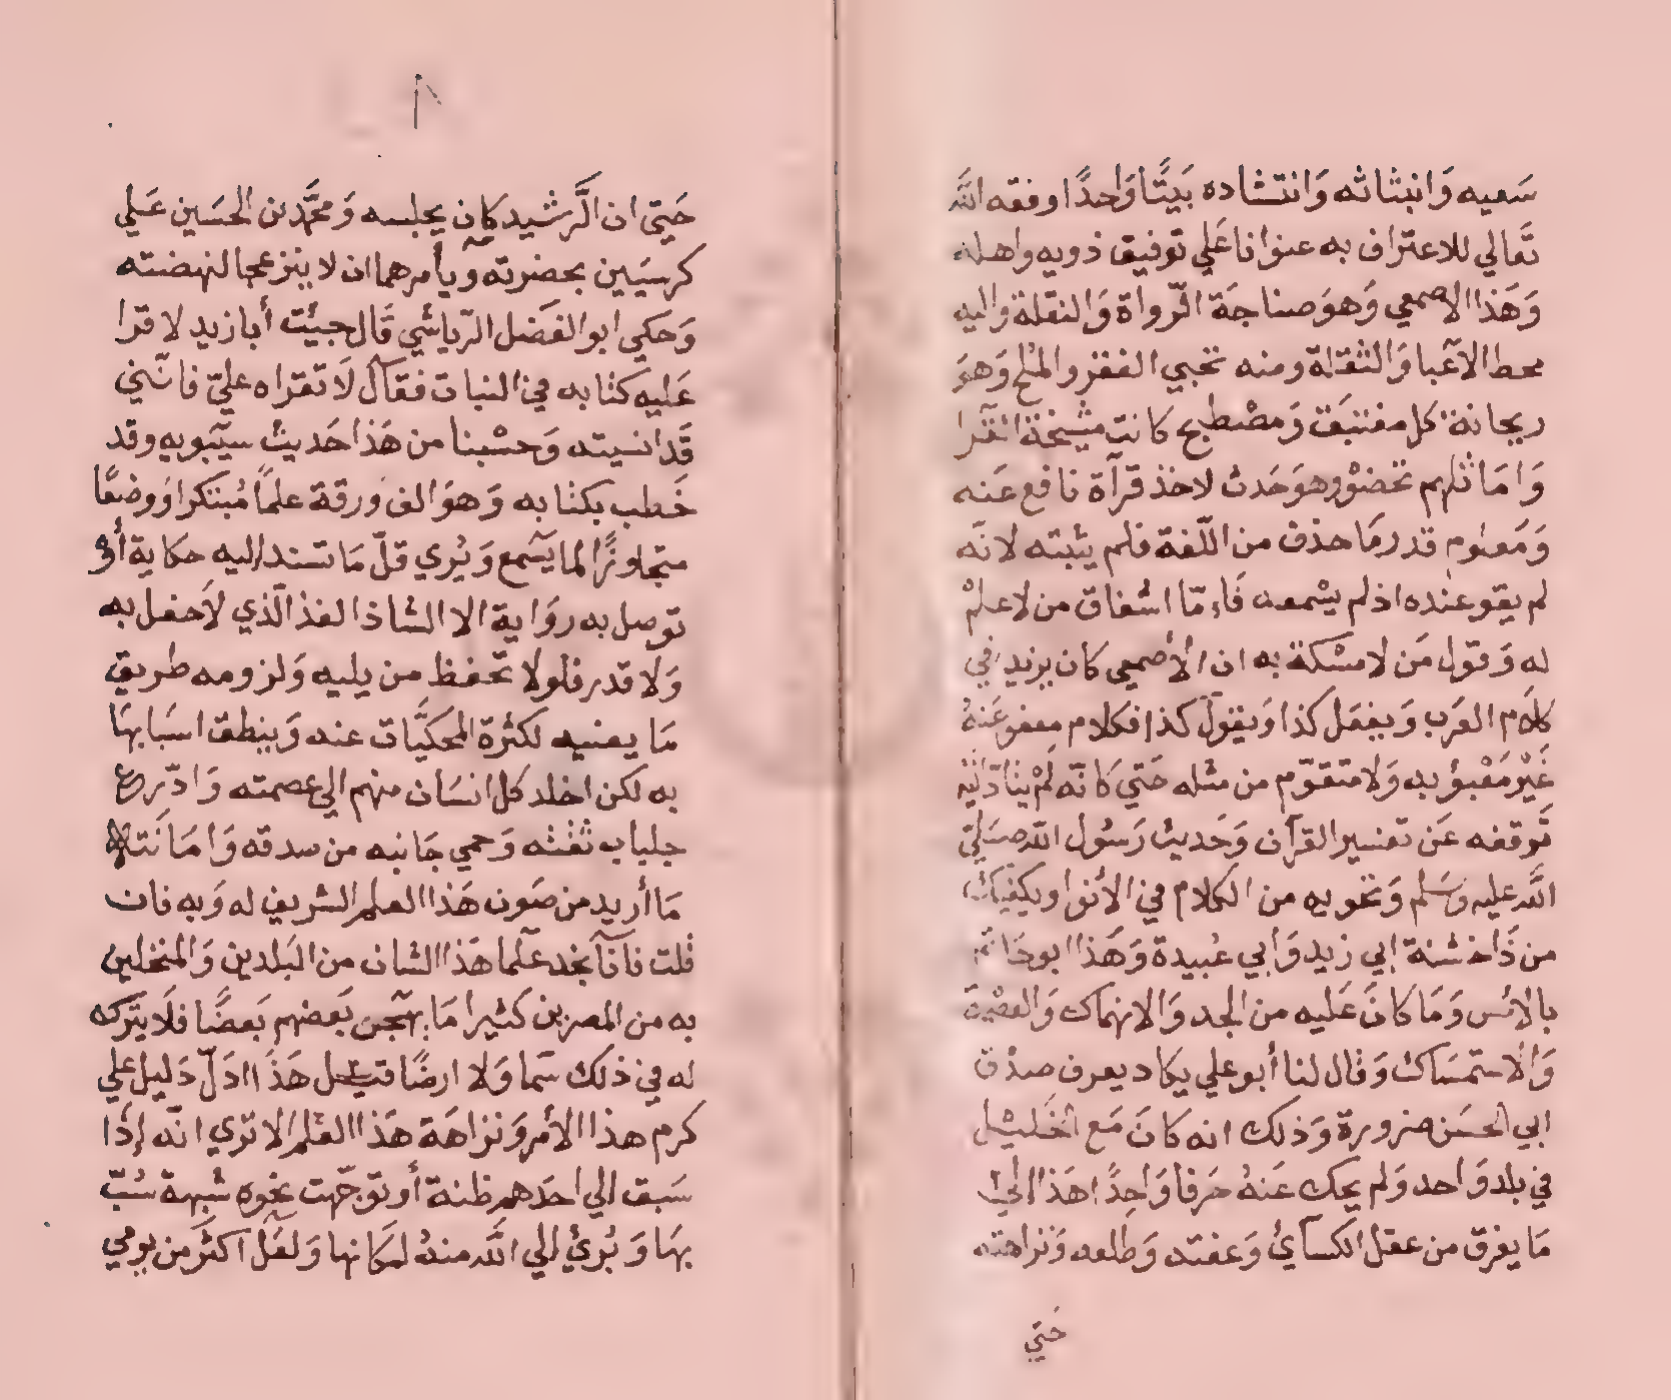 سَعيه وَانبثاثه وَانتشاده بَيتًا وَاحدًا وفقه اللّه
تَعالي للاعتراف به عنوانا عَلي توفيق ذويه واهله
وَهَذا الاصمعي وَهوَ صناجَة الرّواة وَالنقَلة واليه
محط الاَعبا وَالثقلة ومنه تجبي الفقر والمُلح وَهوَ
ريحانة كل مغتبَق وَمصْطبح كانت مشيخة القَرا
وَاَمَاثلهم تحضرْ وهوَ حَدث لاخذ قرآة نافع عَنه
وَمَعلوم قدر مَا حذف من اللّغة فلم يثبته لانّه
لم يقو عنده اذ لم يسْمعه فَامّا اسْفاف من لا علمْ
له وَقول مَن لا مسْكة به ان الأصمعي كان يزيد في
كلاَم العَرب وَيفعَل كذا وَيقول كذا فكلام معفو عَنهُ
غَيْر مَعْبؤ به وَلا متقوّم من مثله حَتي كانّه لمْ يتادّ اليْه
تَوقفه عَن تفسير القرآن وَحَديث رَسُول اللّه صَلي
اللّه عليه وسَلم وَتحوبه من الكلام في الأنوا ويكفيك
من ذَا خشنة ابي زيد وَابي عُبيدة وَهَذا ابو حَاتم
بالامْس وَمَا كانَ عَليه من الجد وَالانهماك وَالعصْمة
وَالاستمسَاك وَقال لنا أبو علي يكاد يعرف صدْق
ابي الحسَن ضرورة وَذلك انه كانَ مَع الخَليْل
في بلد وَاحد وَلم يحك عَنهُ حَرفا وَاحِدًا هَذا اليْ
مَا يعرف من عقل الكسآئي وَعفته وَظلعه وَنزاهته
حَتي
حَتي ان الرَّشيد كان يجلسه وَمحمَّد بن الحسَين عَلي
كرسيَين بحضرته ويأمرهما ان لا ينزعجا لنهضته
وَحكي ابو الفَضل الرّياشي قَال جيئت أبا زيد لاقرا
عَليه كتابه في النبات فقال لاَ تقراه عليّ فانّني
قَد انسيته وَحسْبنا من هَذا حَديث سيبَويه وقد
خَطب بكتابه وَهوَ الف وَرقة علماً مُبتكرا وَوضعًا
متجاوزًا لما يسَمع وَيُري قلّ مَا تسند اليه حكاية أوْ
توصل به روَاية الا الشاذ الفذ الّذي لاَ حفل به
وَلا قدر فلولا تحَفظ من يليه وَلزومه طريق
مَا يعنيه لكثرة المحكيَّات عنه وَنيطت اسبَابهَا
به لكن اخلد كل انسَان منهم الي عصمته وَادّرع
جلباب ثقته وَحمي جَانبه من سدقه وَامَانَته
مَا أريد من صَون هَذا العلم الشريف له وَبه فان
قلت فانّا نجد علما هَذا الشان من البَلدين وَالمتحلين
به من المصرين كثيرا مَا يهجن بَعضهم بَعضًا فلَا يَترك
له في ذلك سَما وَلا ارضًا قيل هَذَا ادَلّ دَليل علي
كرم هذا الأمر وَنزاهَة هَذا العلم الا تري انّه إذَا
سَبق الي احَدهم ظنة أو توَجّهت نحوه شبهة سُبّ
بهَا وَبُرئ الي اللّه منهُ لمكانها وَلعَل اكثَر من يومي